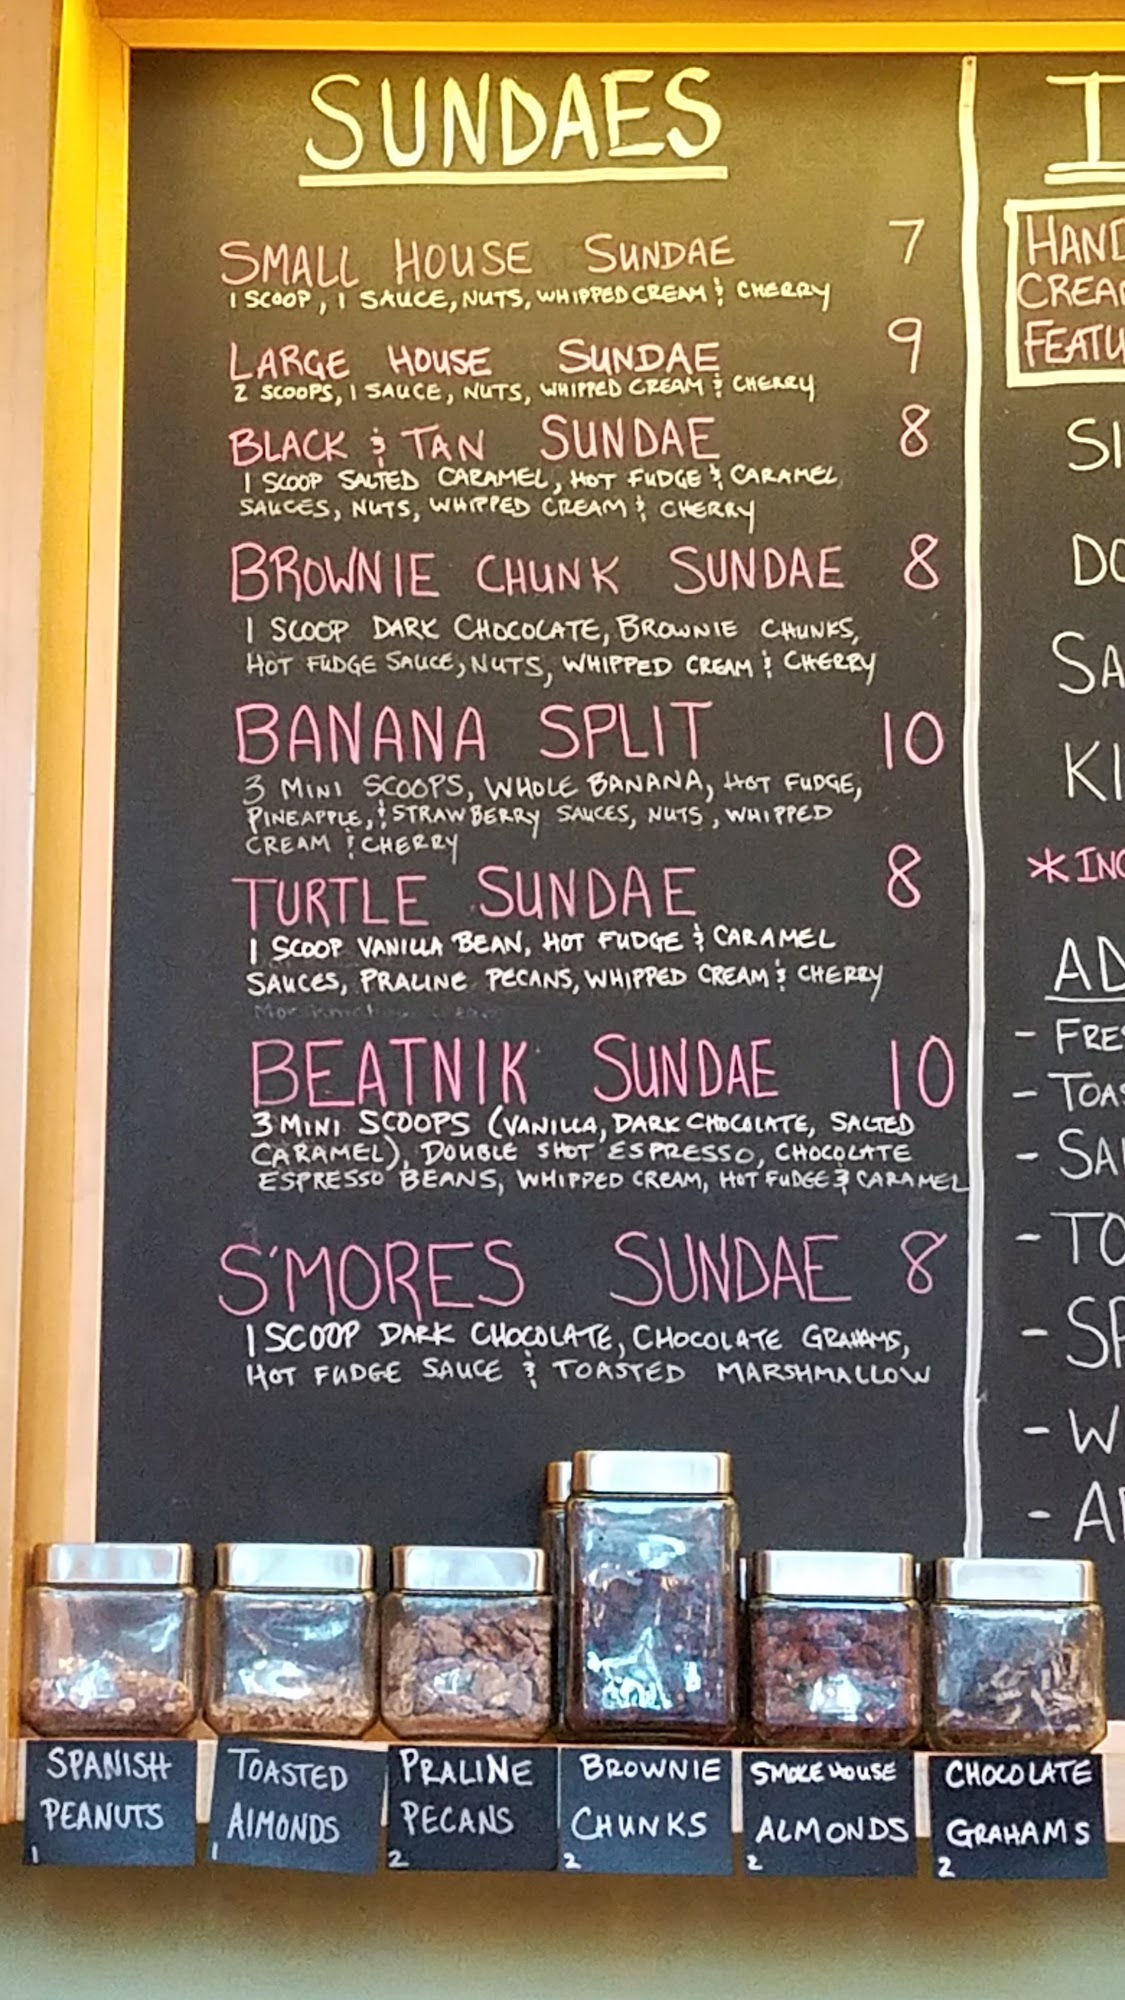 SUNDAES
SMALL HOUSE SUNDAE 7
1 SCOOP, 1 SAUCE, NUTS, WHIPPED CREAM & CHERRY
LARGE HOUSE SUNDAE 9
2 SCOOPS, 1 SAUCE, NUTS, WHIPPED CREAM & CHERRY
BLACK & TAN SUNDAE 8
1 SCOOP SALTED CARAMEL, HOT FUDGE & CARAMEL
SAUCES, NUTS, WHIPPED CREAM & CHERRY
BROWNIE CHUNK SUNDAE 8
1 SCOOP DARK CHOCOLATE, BROWNIE CHUNKS,
HOT FUDGE SAUCE, NUTS, WHIPPED CREAM & CHERRY
BANANA SPLIT 10
3 MINI SCOOPS, WHOLE BANANA, HOT FUDGE,
PINEAPPLE, & STRAWBERRY SAUCES, NUTS, WHIPPED
CREAM & CHERRY
TURTLE SUNDAE 8
1 SCOOP VANILLA BEAN, HOT FUDGE & CARAMEL
SAUCES, PRALINE PECANS, WHIPPED CREAM & CHERRY
BEATNIK SUNDAE 10
3 MINI SCOOPS (VANILLA, DARK CHOCOLATE, SALTED
CARAMEL), DOUBLE SHOT ESPRESSO, CHOCOLATE
ESPRESSO BEANS, WHIPPED CREAM, HOT FUDGE & CARAMEL
S'MORES SUNDAE 8
1 SCOOP DARK CHOCOLATE, CHOCOLATE GRAHAMS,
HOT FUDGE SAUCE & TOASTED MARSHMALLOW
HAND
CREA
FEATU
SI
DO
SA
KI
*INC
AD
- FRE
- TOAS
- SA
- TO
- SP
- W
- A
SPANISH
PEANUTS
1
TOASTED
AlMONDS
1
PRALINE
PECANS
2
BROWNIE
CHUNKS
2
SMOKEHOUSE
ALMONDS
2
CHOCOLATE
GRAHAMS
2